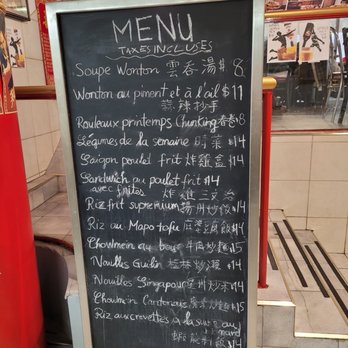 MENU
TAXES INCLUSES
Soupe Wonton 雲吞湯 $8
Wonton au piment et à l'ail $11
蒜辣抄手
Rouleaux printemps Chunking 春卷 $8
Légumes de la semaine 時菜 $14
Saigon poulet frit 炸雞盒 $14
Sandwich au poulet frit $14
avec frites 炸雞三文治
Riz frit supremium 揚州炒飯 $14
Riz au Mapo tofu 麻婆豆腐飯 $14
Chowmein au boeuf 牛肉炒麵 $15
Nouilles Guilin 桂林炒 $14
Nouilles Singapour 星洲炒米 $14
Chowmein Cantonais $15
Riz aux crevettes à la sauce au
$14